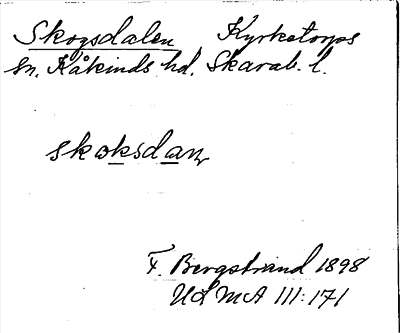 Skogsdalen Kyrketorps
sn. Kåkinds hd, Skarab. l.
skoksdan
F. Bergstrand 1898
ULMA 111:171